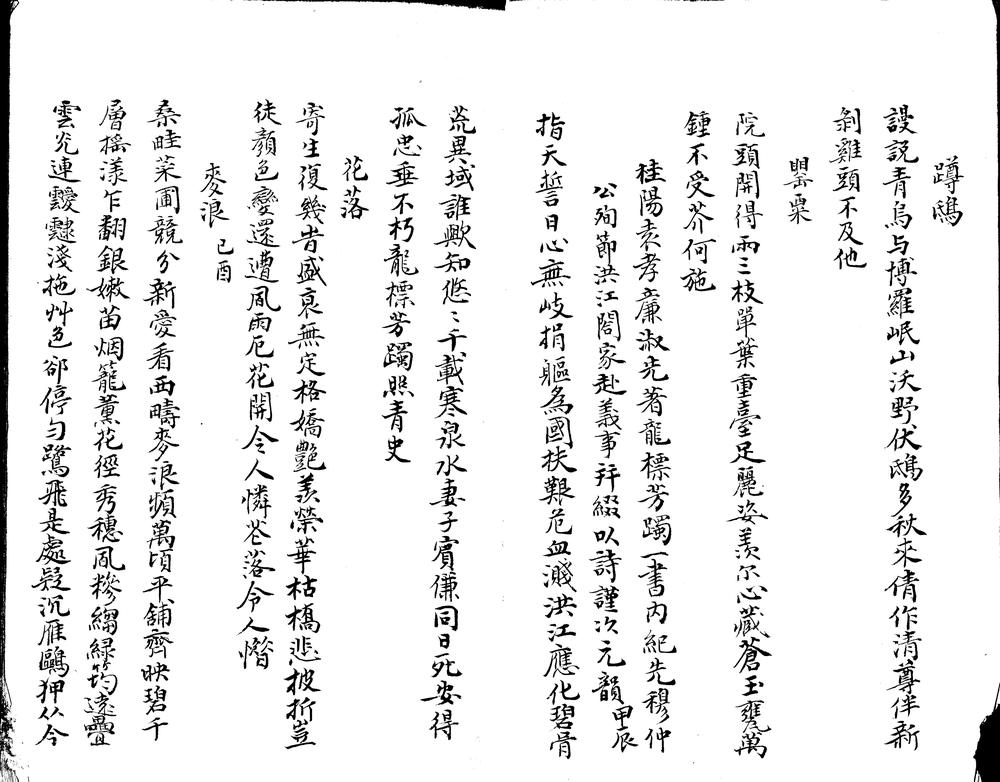 蹲鴟
謾説青烏与博羅岷山沃野伏鴟多秋來倩作清尊伴新
剝雞頭不及他
罌粟
院頭開得兩三枝單葉重臺足麗姿羡尔心藏蒼玉甕萬
鍾不受芥何施
桂陽袁孝廉淑先著龍標芳躅一書内紀先穆仲
公殉節洪江閤家赴義事并綴以詩謹次元韻甲辰
指天誓日心無岐捐軀為國扶艱危血濺洪江應化碧骨
荒異域誰歟知悠〻千載寒泉水妻子賓傔同日死安得
孤忠垂不朽龍標芳躅照青史
花落
寄生復幾昔盛衰無定格嬌艷羡榮華枯槁悲披折豈
徒顏色變還遭風雨厄花開令人憐花落令人惜
麥浪 己酉
桑畦菜圃競分新愛看西疇麥浪頻萬頃平舖齊映碧千
層搖漾乍翻銀嫩苗烟籠薰花徑秀穗風糝縐緑筠遠疊
雲光連靉靆淺拖艸色卻停勻鷺飛是處疑沉雁鷗狎从今